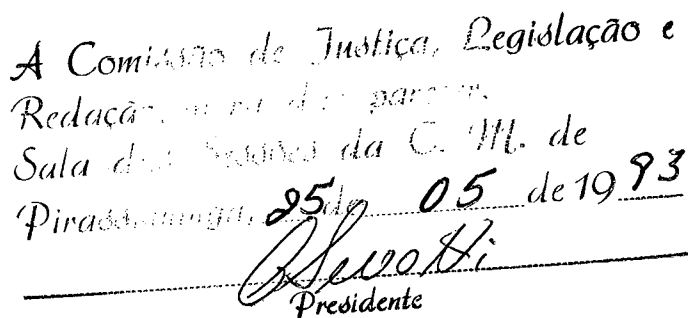 A Comissão de Justiça, Legislação e
Redação, para dar parecer.
Sala das Sessões da C. M. de
Pirassununga, 25 de 05 de 1993
Presidente